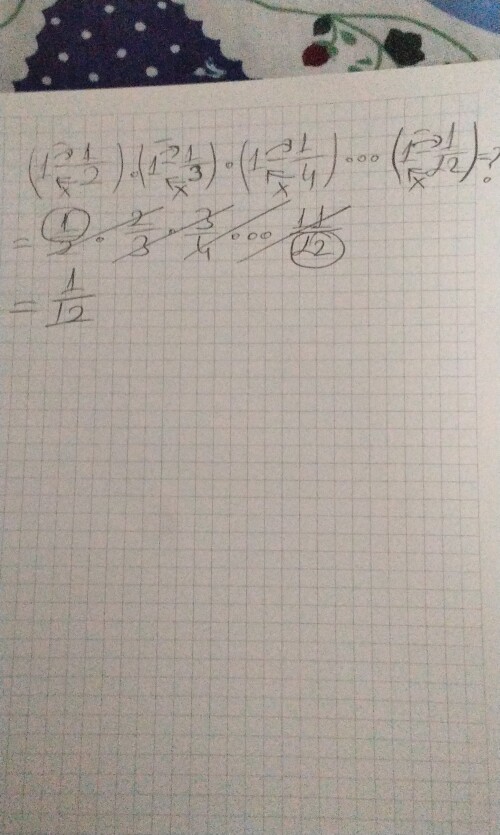 (1 - 1/2) · (1 - 1/3) · (1 - 1/4) ··· (1 - 1/12) = ?
= 1/2 · 2/3 · 3/4 ··· 11/12
= 1/12